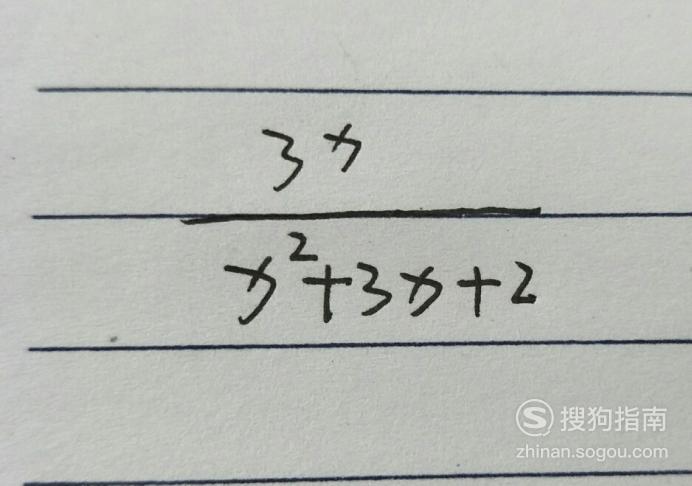 3x
x²+3x+2
搜狗指南
zhinan.sogou.com